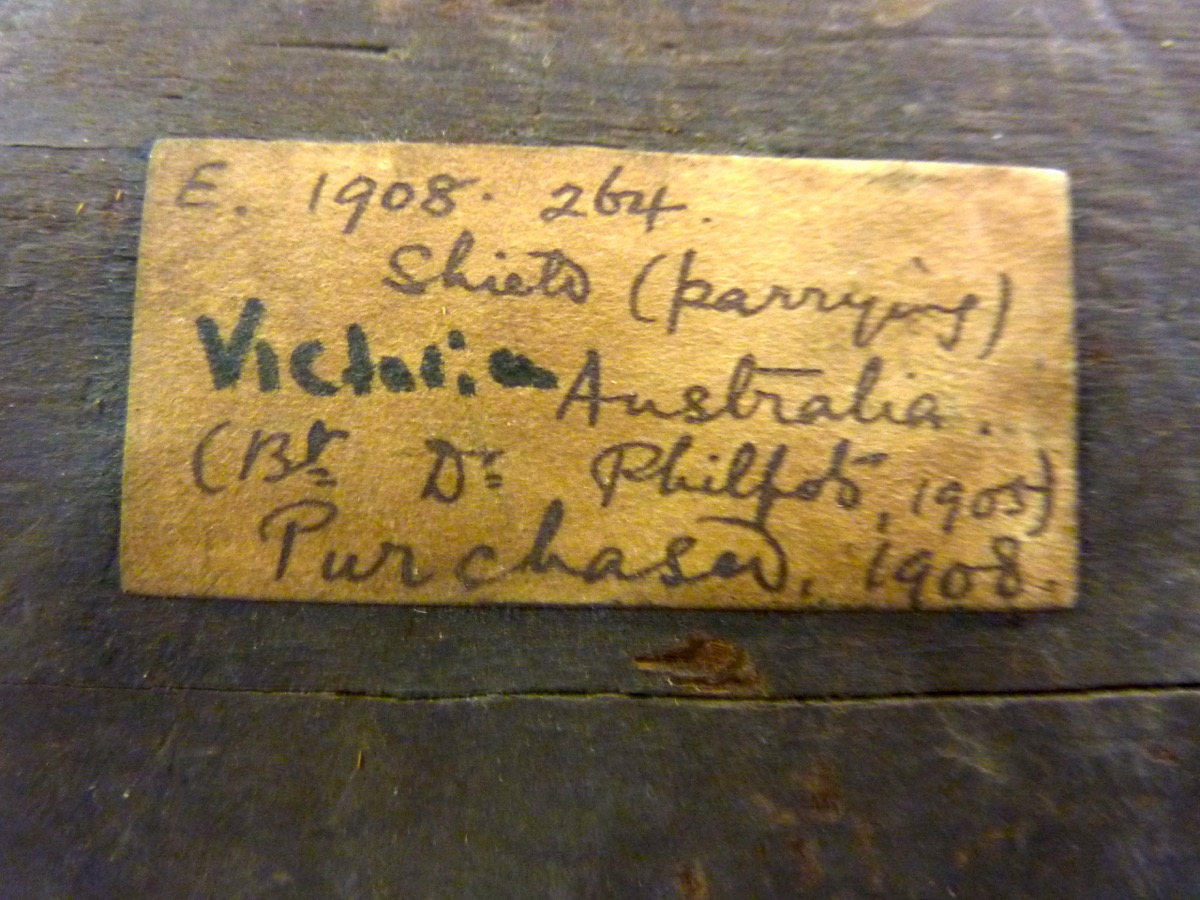 E. 1908. 264.
Shield (parrying)
Victoria Australia.
(Bt Dr Philpot, 1905)
Purchased, 1908.